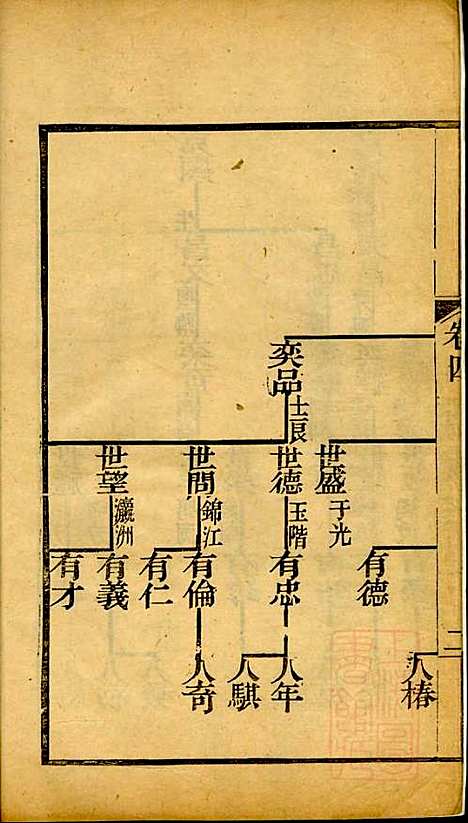 卷四
二
奕品
士良
世盛
于光
世德
玉階
世問
錦江
世望
瀛洲
有德
有忠
有倫
有仁
有義
有才
人椿
人年
人騏
人奇